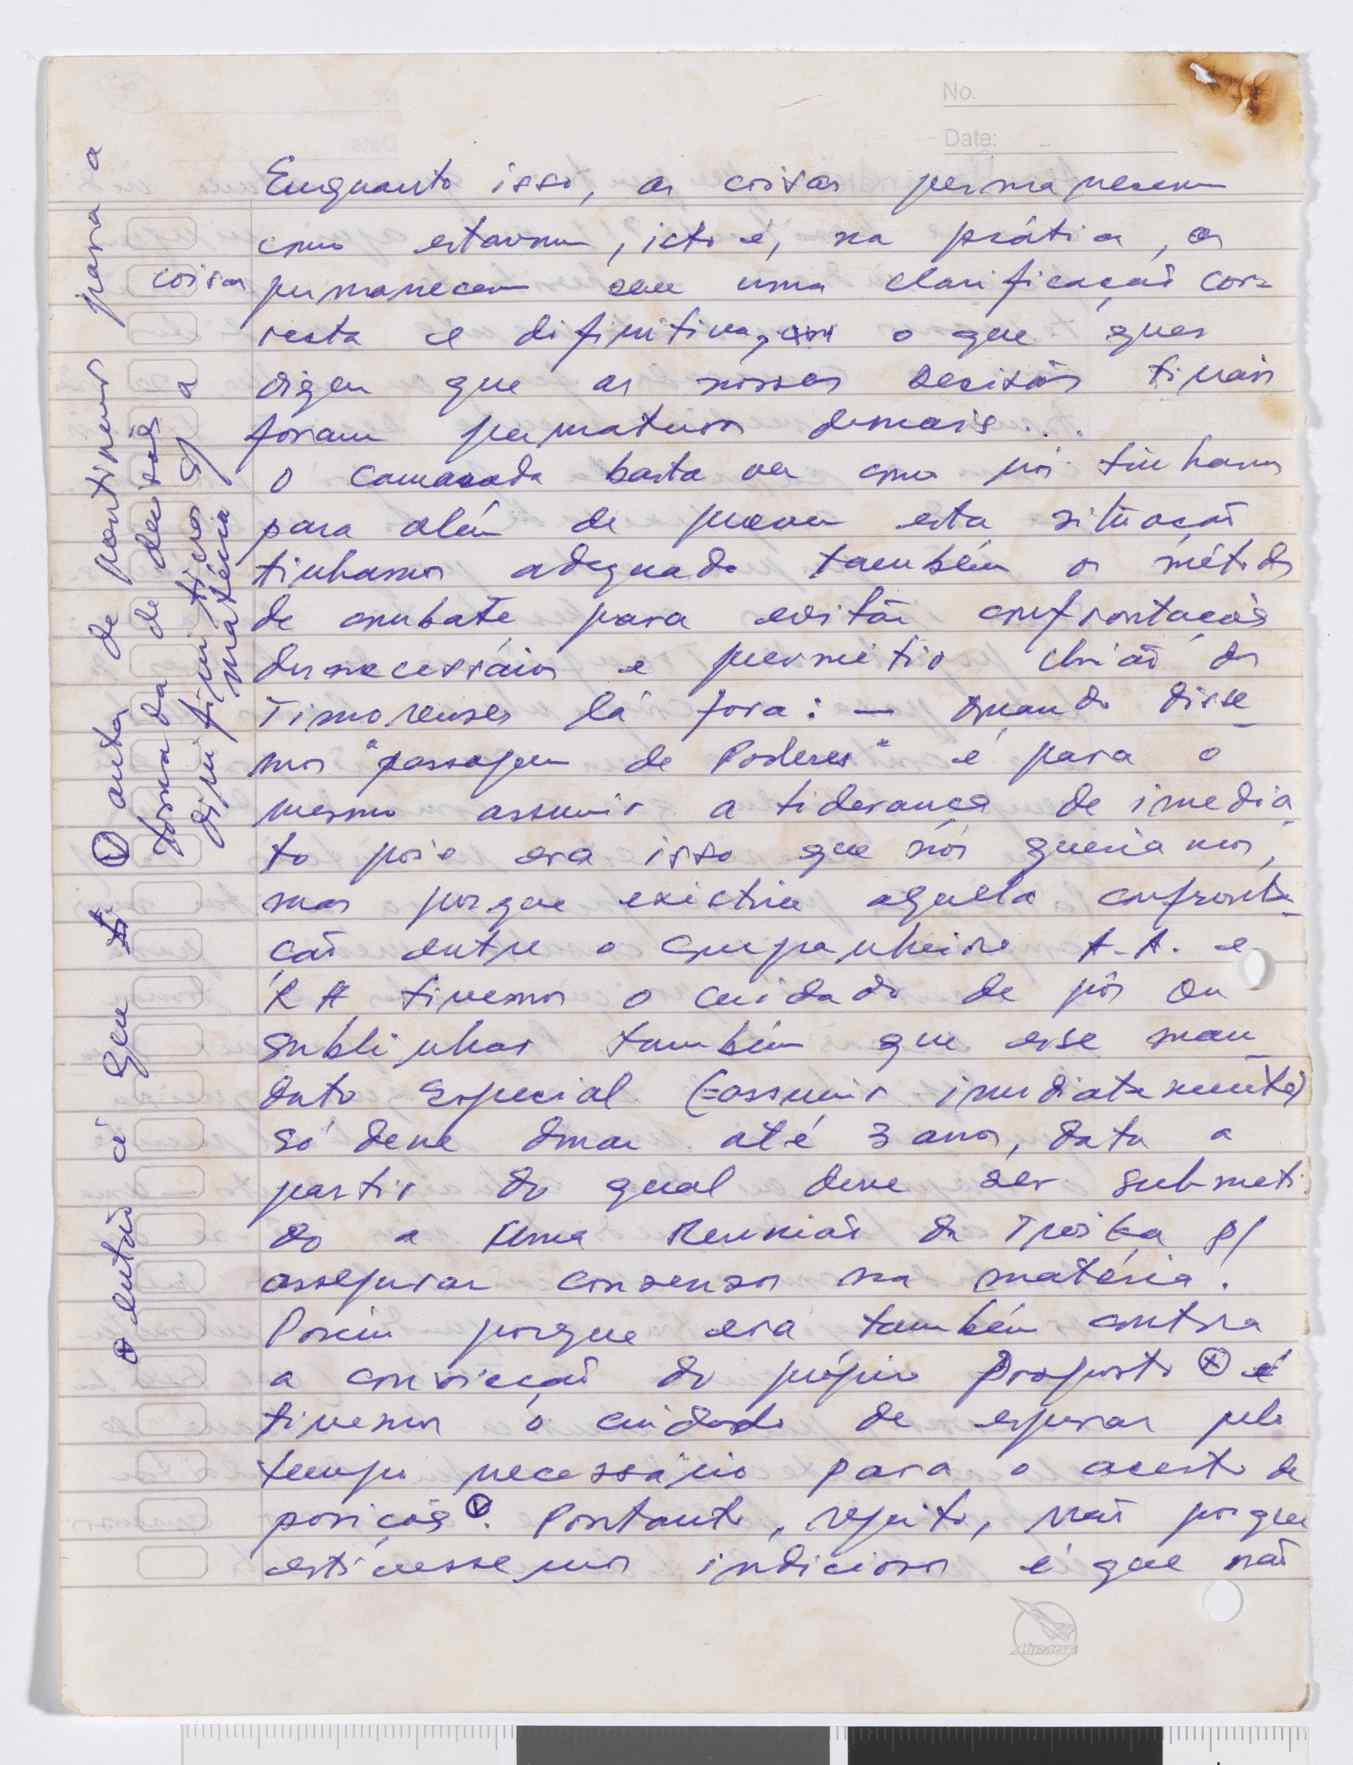 No.
Date:
Enquanto isso, as coisas permanecem
como estavam, isto é, na prática, as
coisas permanecem sem uma clarificação cor-
recta e difinitiva, o que quer
dizer que as nossas decisões
foram prematuras demais...
O camarada basta ver como nós tinhamos
para além de prever esta situação
tinhamos adequado também os métodos
de combate para evitar confrontações
desnecessárias e dos
Timorenses lá fora: — Quando disse-
mos "passagem de Poderes" é para o
mesmo assumir a liderança de imedia-
to pois era isso que nós queriamos,
mas porque existia aquela confronta-
ção entre o Companheiro A.A. e
RH tivemos o cuidado de pôr ou
sublinhar também que esse man-
dato Especial (=assumir imediatamente)
só deve durar até 3 anos, data a
partir do qual deve ser submeti-
do a uma Reunião da Troika p/
assegurar consenso na matéria!
Porém porque era também contra
a convicção do próprio Proposto ⊗ é
tivemos o cuidado de esperar pelo
tempo necessário para o acerto de
posições Ⓥ. Portanto, repito, não porque
estivessemos indiciosos é que não
⊕ então é que Ⓥ antes de partirmos para a
tomada de decisão
difinitivas p/ a
matéria